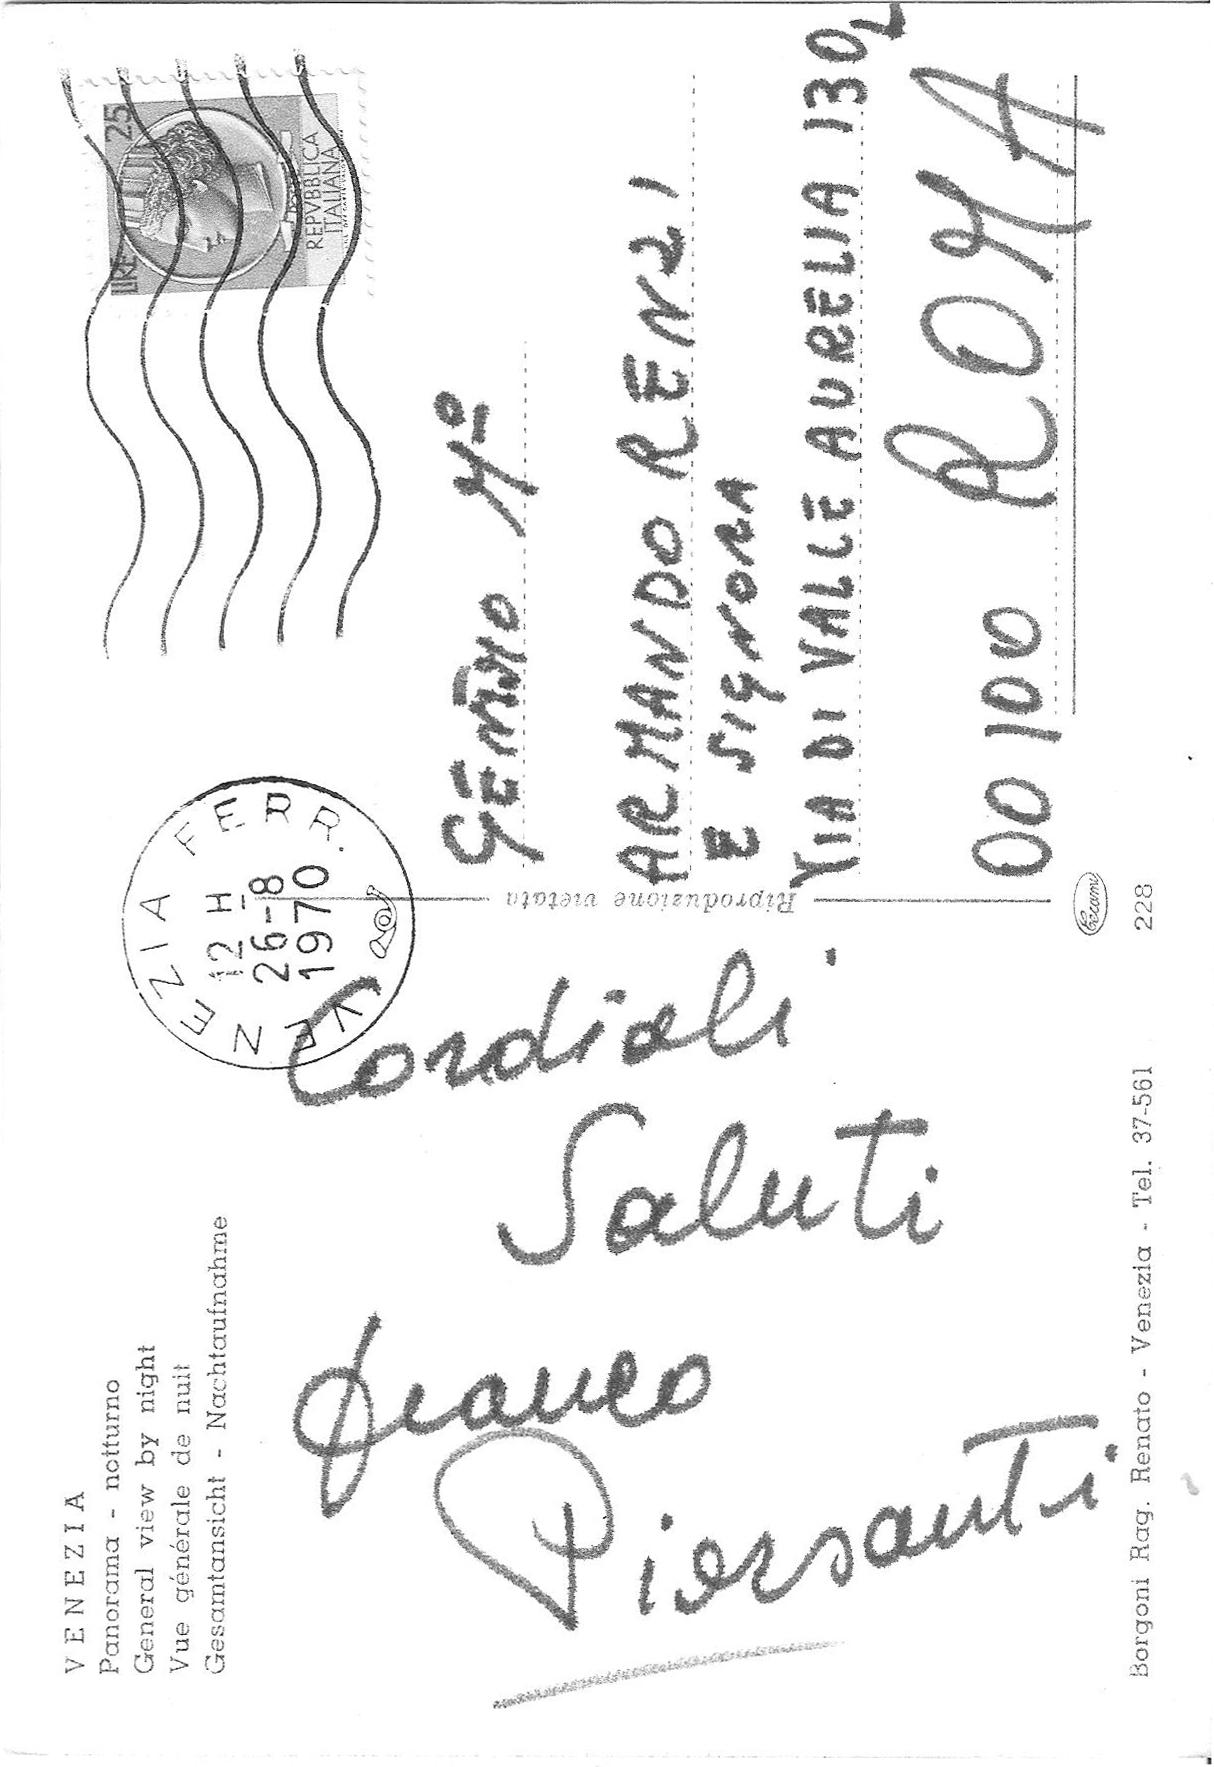 VENEZIA
Panorama - notturno
General view by night
Vue générale de nuit
Gesamtansicht - Nachtaufnahme
Cordiali
Saluti
Franco
Piersanti
Borgoni Rag. Renato - Venezia - Tel. 37-561
228
Cecami
Riproduzione vietata
VENEZIA FERR.
12 H
26-8
1970
LIRE 25
REPVBBLICA
ITALIANA
Mº
ARMANDO RENZI
E SIGNORA
VIA DI VALLE AURELIA 130
00100 ROMA